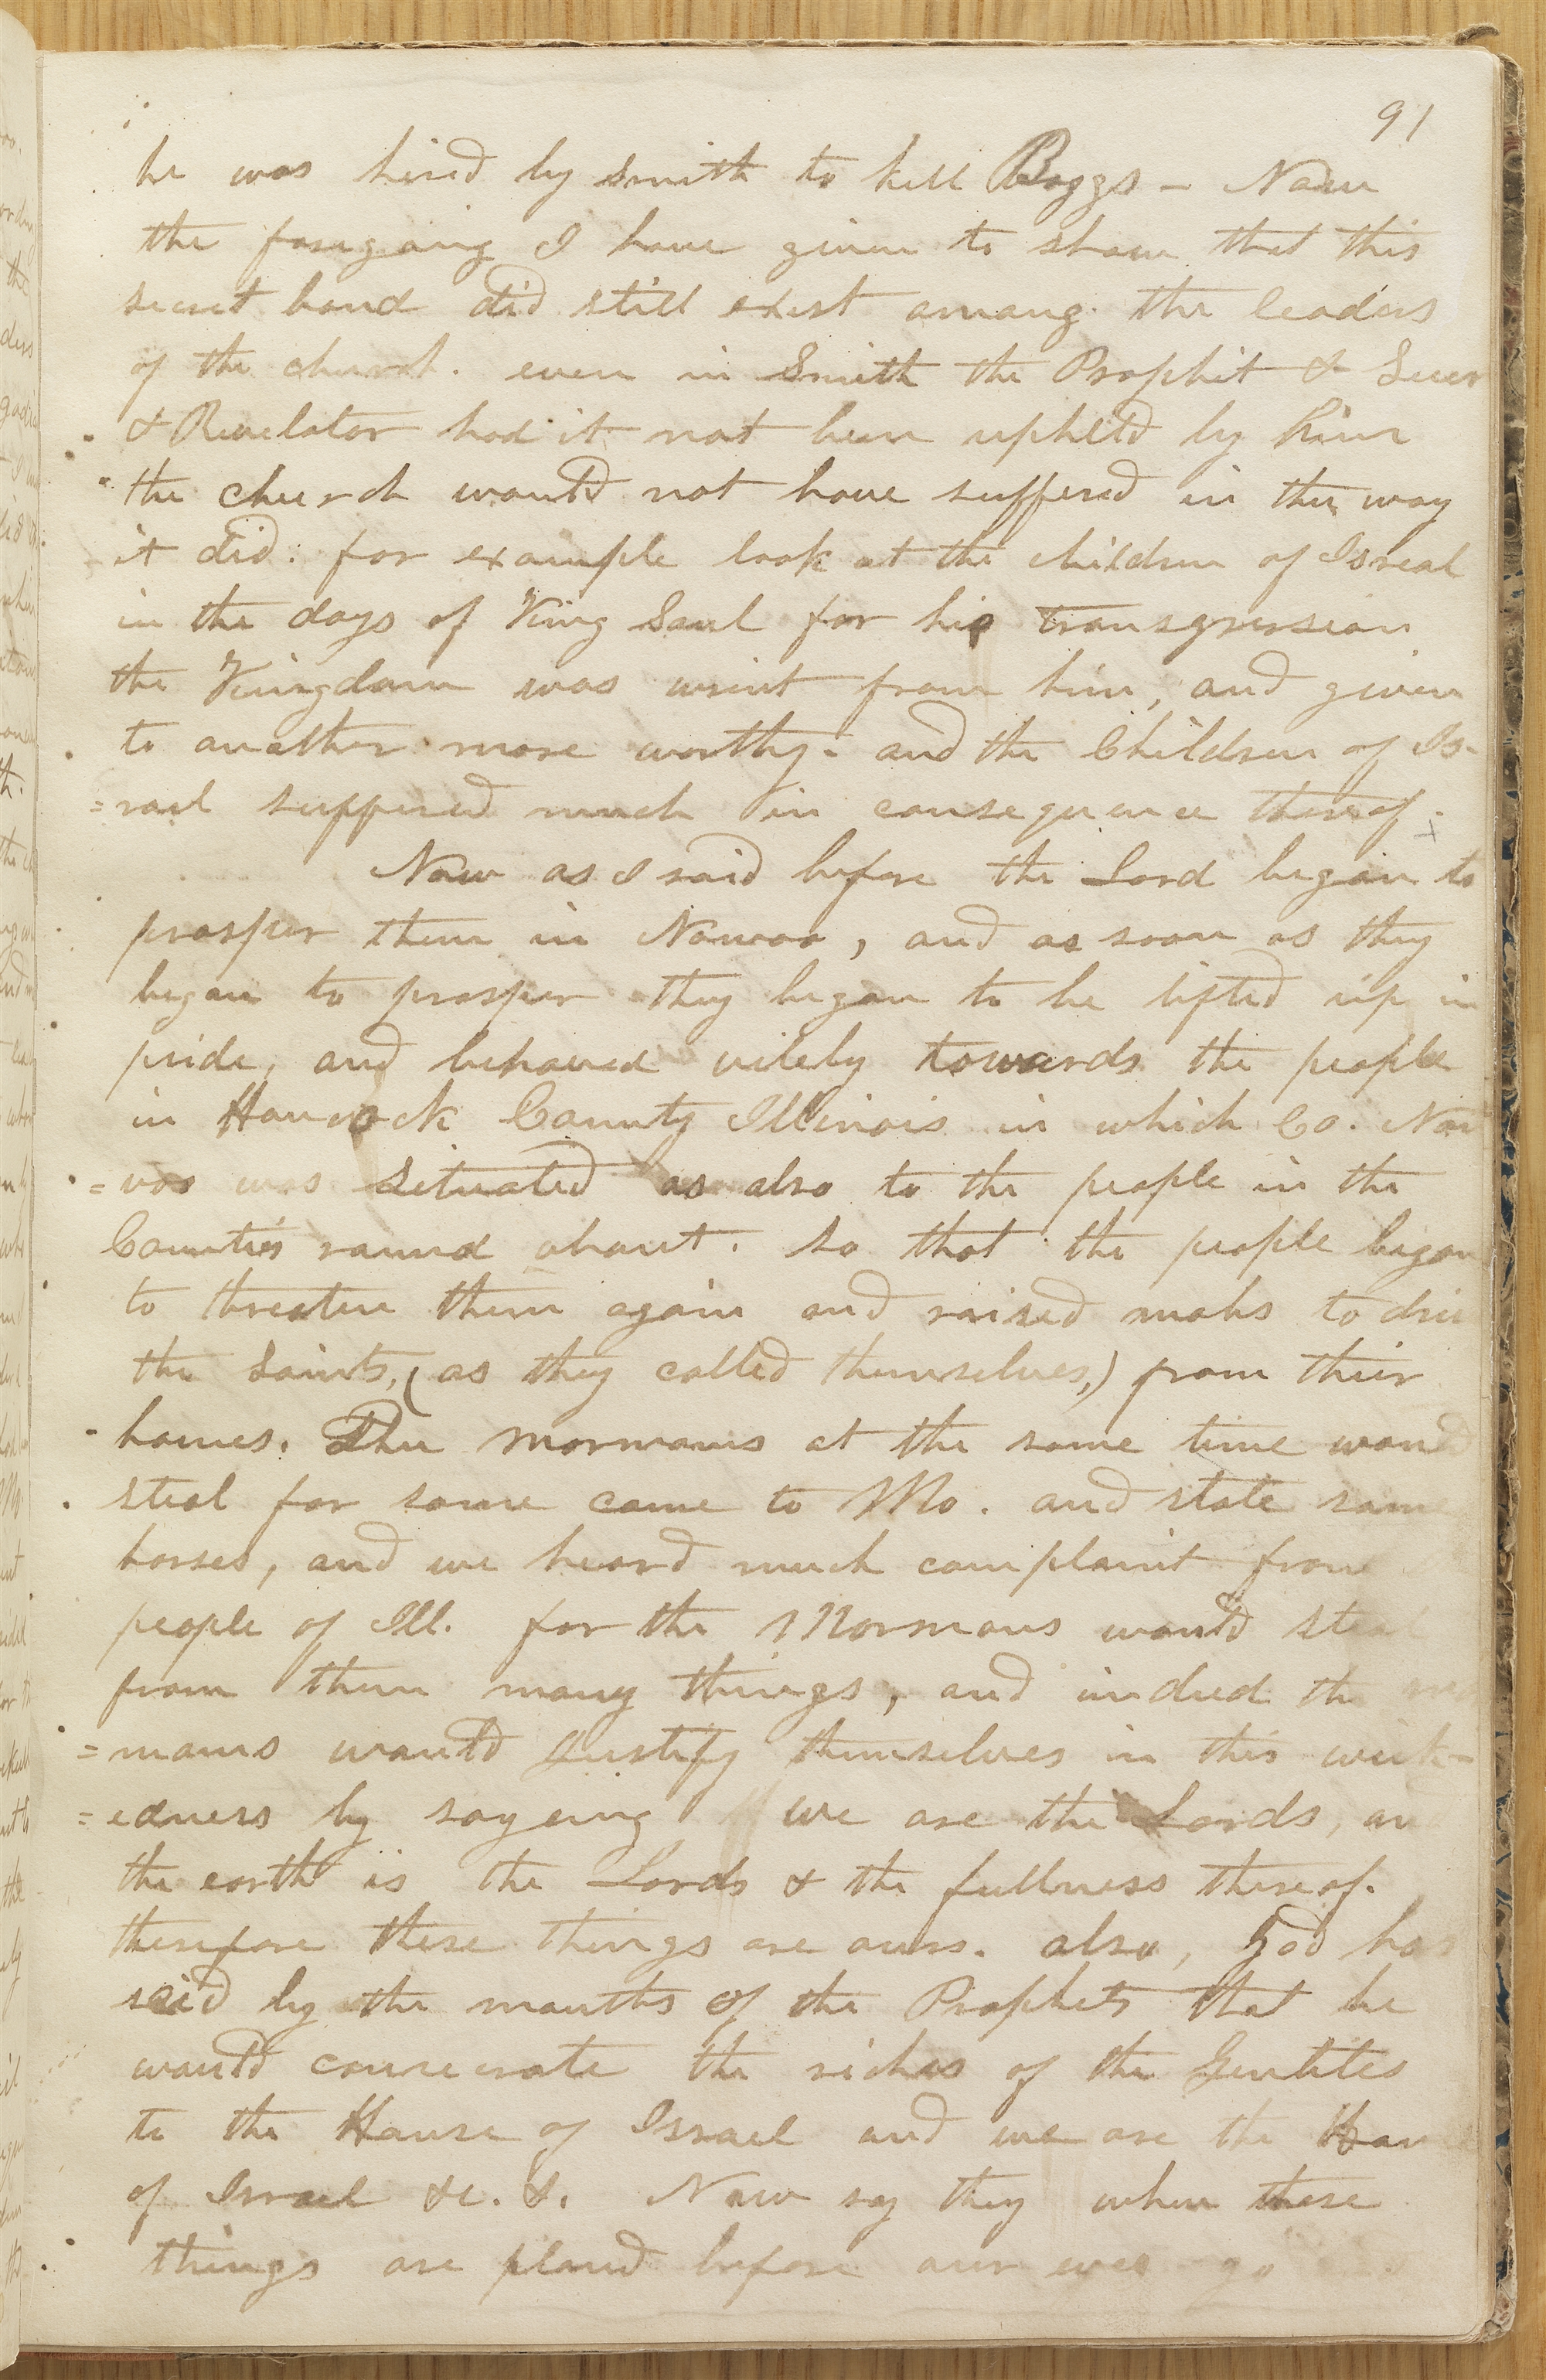 91
he was hired by Smith to kill Boggs - Now
the foregoing I have given to show that this
secret band did still exist among the leaders
of the church. even in Smith the Prophit & Seer
& Revelator had it not been upheld by him
the church would not have suffered in the way
it did. for example look at the children of Isreal
in the days of King Saul for his transgression
the Kingdom was wrint from him, and given
to another more worthy. and the Children of Is-
=rael suffered much in consequence thereof.
Now as I said before the Lord began to
prosper them in Nawoo, and as soon as they
began to prosper they began to be lifted up in
pride, and behaved vilely towards the people
in Hancock County Illinois in which Co. Nau
=voo was situated as also to the people in the
Counties round about. so that the people began
to threaten them again and raised mobs to driv
the Saints, (as they called themselves,) from their
homes. The mormons at the same time would
steal for some came to Mo. and stole some
horses, and we heard much complaint from
people of Ill. for the Mormons would steal
from them many things, and indeed the mor
=mons would justify themselves in this wick-
=edness by sayeing we are the Lords, an
the earth is the Lords & the fullness thereof.
therefore these things are ours. also, God has
said by the mouths of the Prophets that he
would consecrate the riches of the Gentiles
to the House of Israel and we are the Hou
of Israel &c. &. Now say they when these
things are placed before our eyes go